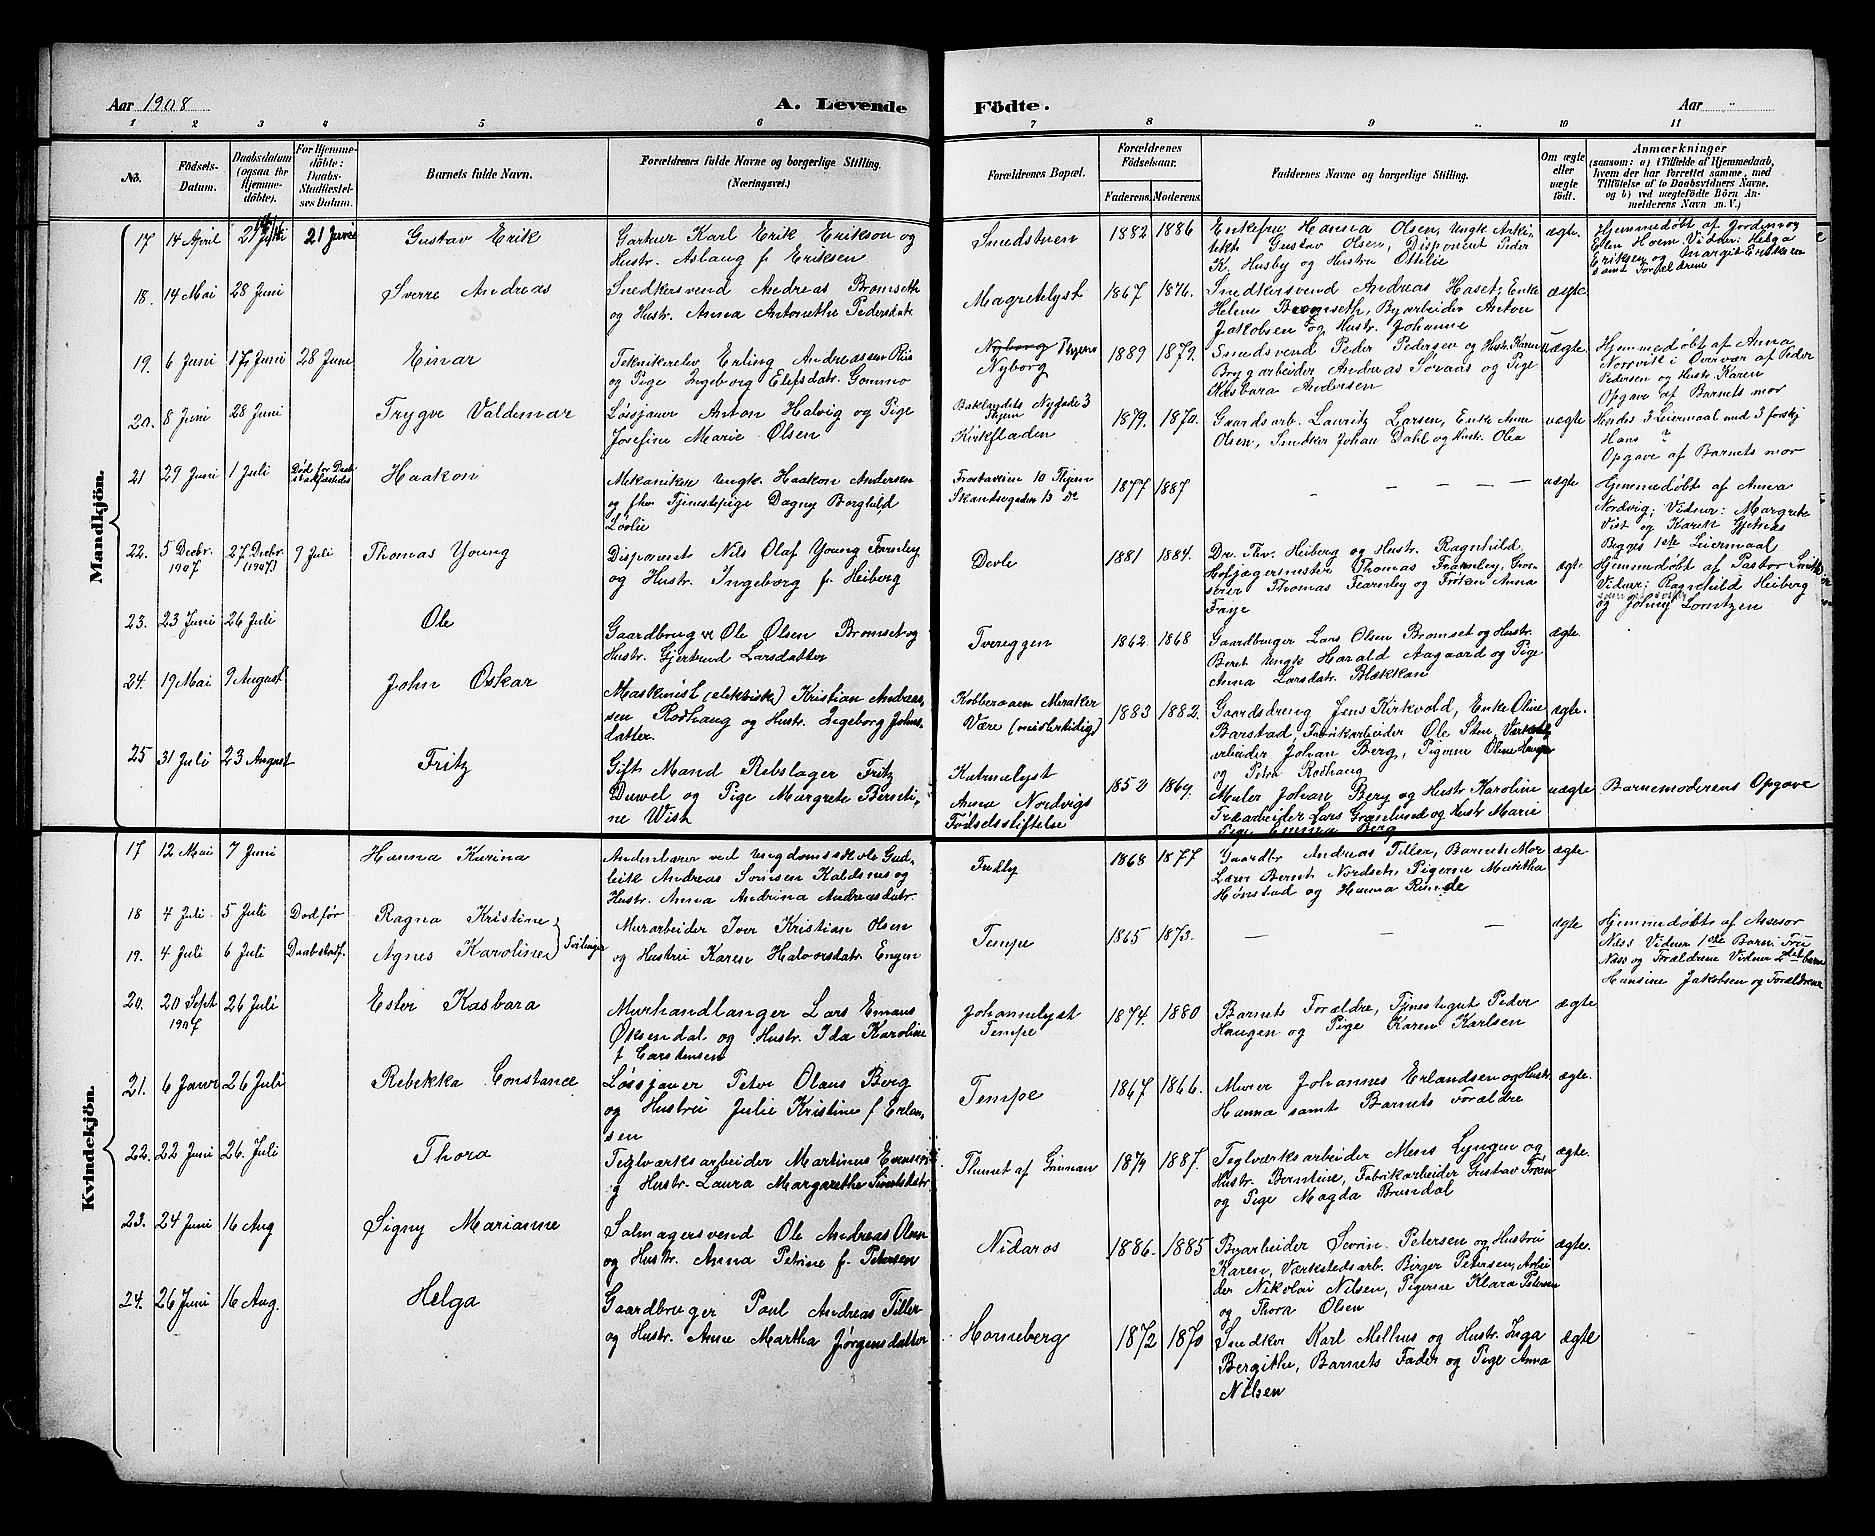 Aar 1908
A. Levende
Födte.
Aar
1 2 3 4 5 6 7 8 9 10 11
No.
Födsels-
Datum.
Daabsdatum
(ogsaa for
Hjemme-
döbte).
For Hjemme-
döbte:
Daabs-
Stadfæstel-
ses Datum.
Barnets fulde Navn.
Forældrenes fulde Navne og borgerlige Stilling.
(Næringsvei.)
Forældrenes Bopæl.
Forældrenes
Födselsaar.
Faderens. Moderens.
Faddernes Navne og borgerlige Stilling.
Om ægte
eller
uægte
födt.
Anmærkninger
(saasom: a) i Tilfælde af Hjemmedaab,
hvem der har forrettet samme, med
Tilföielse af to Daabsvidners Navne,
og b) ved uægtefödte Börn An-
melderens Navn m. V.)
Mandkjön.
17 14 April 21 Juni
Gustav Erik
Gartner Karl Erik Erikson og
Hustr. Aslaug f. Eriksen
Smedstuen
1882 1886
Enkefru Hanna Olsen, Ungk Arki-
tekt Gustav Olsen, Disponent Peder
K. Husby og Hustru Ottilie
ægte.
Hjemmedøbt af Jordemor
Ellen Hoem. Vidner: Helga
Eriksen og Margit Eriksen
samt Forældrene
18. 14 Mai 28 Juni
Sverre Andreas
Snedkersvend Andreas Bromseth
og Hustr. Anna Antonette Pedersdatr.
Magretelyst
1867 1876.
Snedkersvend Andreas Haset, Enke
Helene Bromseth, Byarbeider Anton
Jakobsen og Hustr. Johanne
ægte
19. 6 Juni 17 Juni 28 Juni
Einar
Teknikerelev Erling Andreassen Riis
og Pige Ingeborg Elefsdatr. Gommo
Nyborg Thjem
Nyborg
1889 1879.
Smedsvend Peder Pedersen og Hustr. Karen
Brygarbeider Andreas Soraas og Pige
Kasbara Andersen
uægte.
Hjemmedøbt af Anna
Norvik i Overvær af Peder
Pedersen og Hustr. Karen
Opgave af Barnets mor
20. 8 Juni 28 Juni
Trygve Valdemar
Løssjauer Anton Halvig og Pige
Josefine Marie Olsen
Baklandets Nygade 3
Thjem
Kirkfladen
1879. 1870.
Gaardsarb. Lauritz Larsen, Enke Anne
Olsen, Smedker Johan Dahl og Hustr. Olea
uægte
Hendes 3 Leiermaal med 3 forskj
Hans ?
Opgave af Barnets mor
21 29 Juni 1 Juli
Død før Daab
stadfæstedes
Haakon
Mekaniker ungk. Haakon Andersen
og fhv Tjenestepige Dagny Borghild
Løvlie
Frostaveien 10 Thjem
Skandsegaden 13 Do
1877 1887
– – – – –
uægte
Hjemmedøbt af Anna
Nordvig; Vidner: Margrete
Vist og Karen Gjetnes
Begges 1ste Leiermaal
22. 5 Decbr. 1907 27 Decbr. (1907) 7 Juli
Thomas Young
Disponent Nils Olaf Young Fearnley
og Hustr. Ingeborg f. Heiberg
Devle
1881 1884.
Dr. Thv. Heiberg og Hustr. Ragnhild,
Hofjægermester Thomas Fearnley, Gros-
serer Thomas Fearnley og Frøken Anna
Faye
ægt.
Hjemmedøbt af Pastor Smith
Vidner: Ragnehild Heiberg
og Johny Lorntzen
23. 23 Juni 26 Juli
Ole
Gaardbruger Ole Olsen Bromset og
Hustr. Gjertrud Larsdatter
Tvereggen
1862 1868
Gaardbruger Lars Olsen Bromset og Hustr.
Beret Ungk Harald Aagaard og Pige
Anna Larsdatr. Blekkan
ægte.
24. 19 Mai 9 August
John Oskar
Maskinist (elektriske) Kristian Andrea-
sen Rodhaug og Hustr. Ingeborg Johns-
datter.
Kobberaaen Meraker
Være (midlertidig)
1883 1882.
Gaardsdreng Jens Kirkvold, Enke Oline
Barstad, Fabrikarbeider Ole Sten, Værksteds
arbeider Johan Berg, Pigerne Oline Haugen
og Petra Rodhaug
ægte.
25 31 Juli 23 August
Fritz
Gift Mand Rebslager Fritz
Duwel og Pige Margrete Bernti-
ne Wist
Katrinelyst
Anna Nordvigs
Fødselsstiftelse
1852 1869.
Maler Johan Berg og Hustr Karoline
Træarbeider Lars Grønlund og Hustr Marie
Pige Emma Berg
uægte
Barnemoderens Opgave
Kvindekjön.
17 12 Mai 7 Juni
Hanna Karina
Andenlærer ved Ungdomsskole Gud-
leik Andreas Kaldsnes og
Hustr. Anna Andrina Andreasdatr.
1868 1877
Gaardbr Andreas Tiller, Barnets Mor
Lærer Bernt Nordseth, Pigerne Maritha
Hønstad og Hanna Rimde
ægte
18 4 Juli. 5 Juli Død før
Ragna Kristine
19. 4 Juli 6 Juli Daabstadf.
Agnes Karoline Tvilinger
Murarbeider Iver Kristian Olsen
og Hustru Karen Halvorsdatr. Engen
Tempe
1865 1873.
– – –
ægte
Hjemmedøbt af Assesor
Næss. Vidner 1ste Barn: Fru
Næss og Forældrene Vidner 2det barn
Hansine Jakobsen og Forældrene
20. 20 Sept 1907 26 Juli
Ester Kasbara
Murhandlanger Lars Emaus
Øksendal og Hustr. Ida Karoline
f Carstensen
Johannelyst
Tempe
1874. 1880
Barnets Forældre, Tjenestegut Peder
Haugen og Pige Karen Karlsen
ægte
21. 6 Januar 26 Juli
Rebekka Constance
Løssjauer Peter Olaus Berg
og Hustru Julie Kristine f Erlan-
sen
Tempe
1867 1866.
Murer Johannes Erlandsen og Hustr.
Hanna samt Barnets Forældre
ægte.
22. 22 Juni 26. Juli
Thora
Teglværksarbeider Martinus Evensen
og Hustr. Laura Margarethe Simonsdatr
Thunet af Grinan
1879 1887.
Teglværksarbeider Mens Lyngen og
Hustr. Berntine, Fabrikarbeider Gustav
og Pige Magda Brundal
ægte.
23. 24 Juni 16 Aug
Signy Marianne
Salmagersvend Ole Andreas Olsen
og Hustr. Anna Petrine f. Petersen
Nidaros
1886. 1885
Byarbeider Sevrin Petersen og Hustru
Karen, Værkstedsarb. Birger Petersen, Arbei
der Nikolai Nilsen, Pigerne Klara Petersen
og Thora Olsen
ægte.
24. 26 Juni 16 Aug.
Helga
Gaardbruger Paul Andreas Tiller
og Hustr. Anne Martha Jørgensdatter
Horneberg
1872 1870
Snedker Karl Melhus og Hustr. Inga
Bergithe, Barnets Fader og Pige Anna
Nilsen
ægte